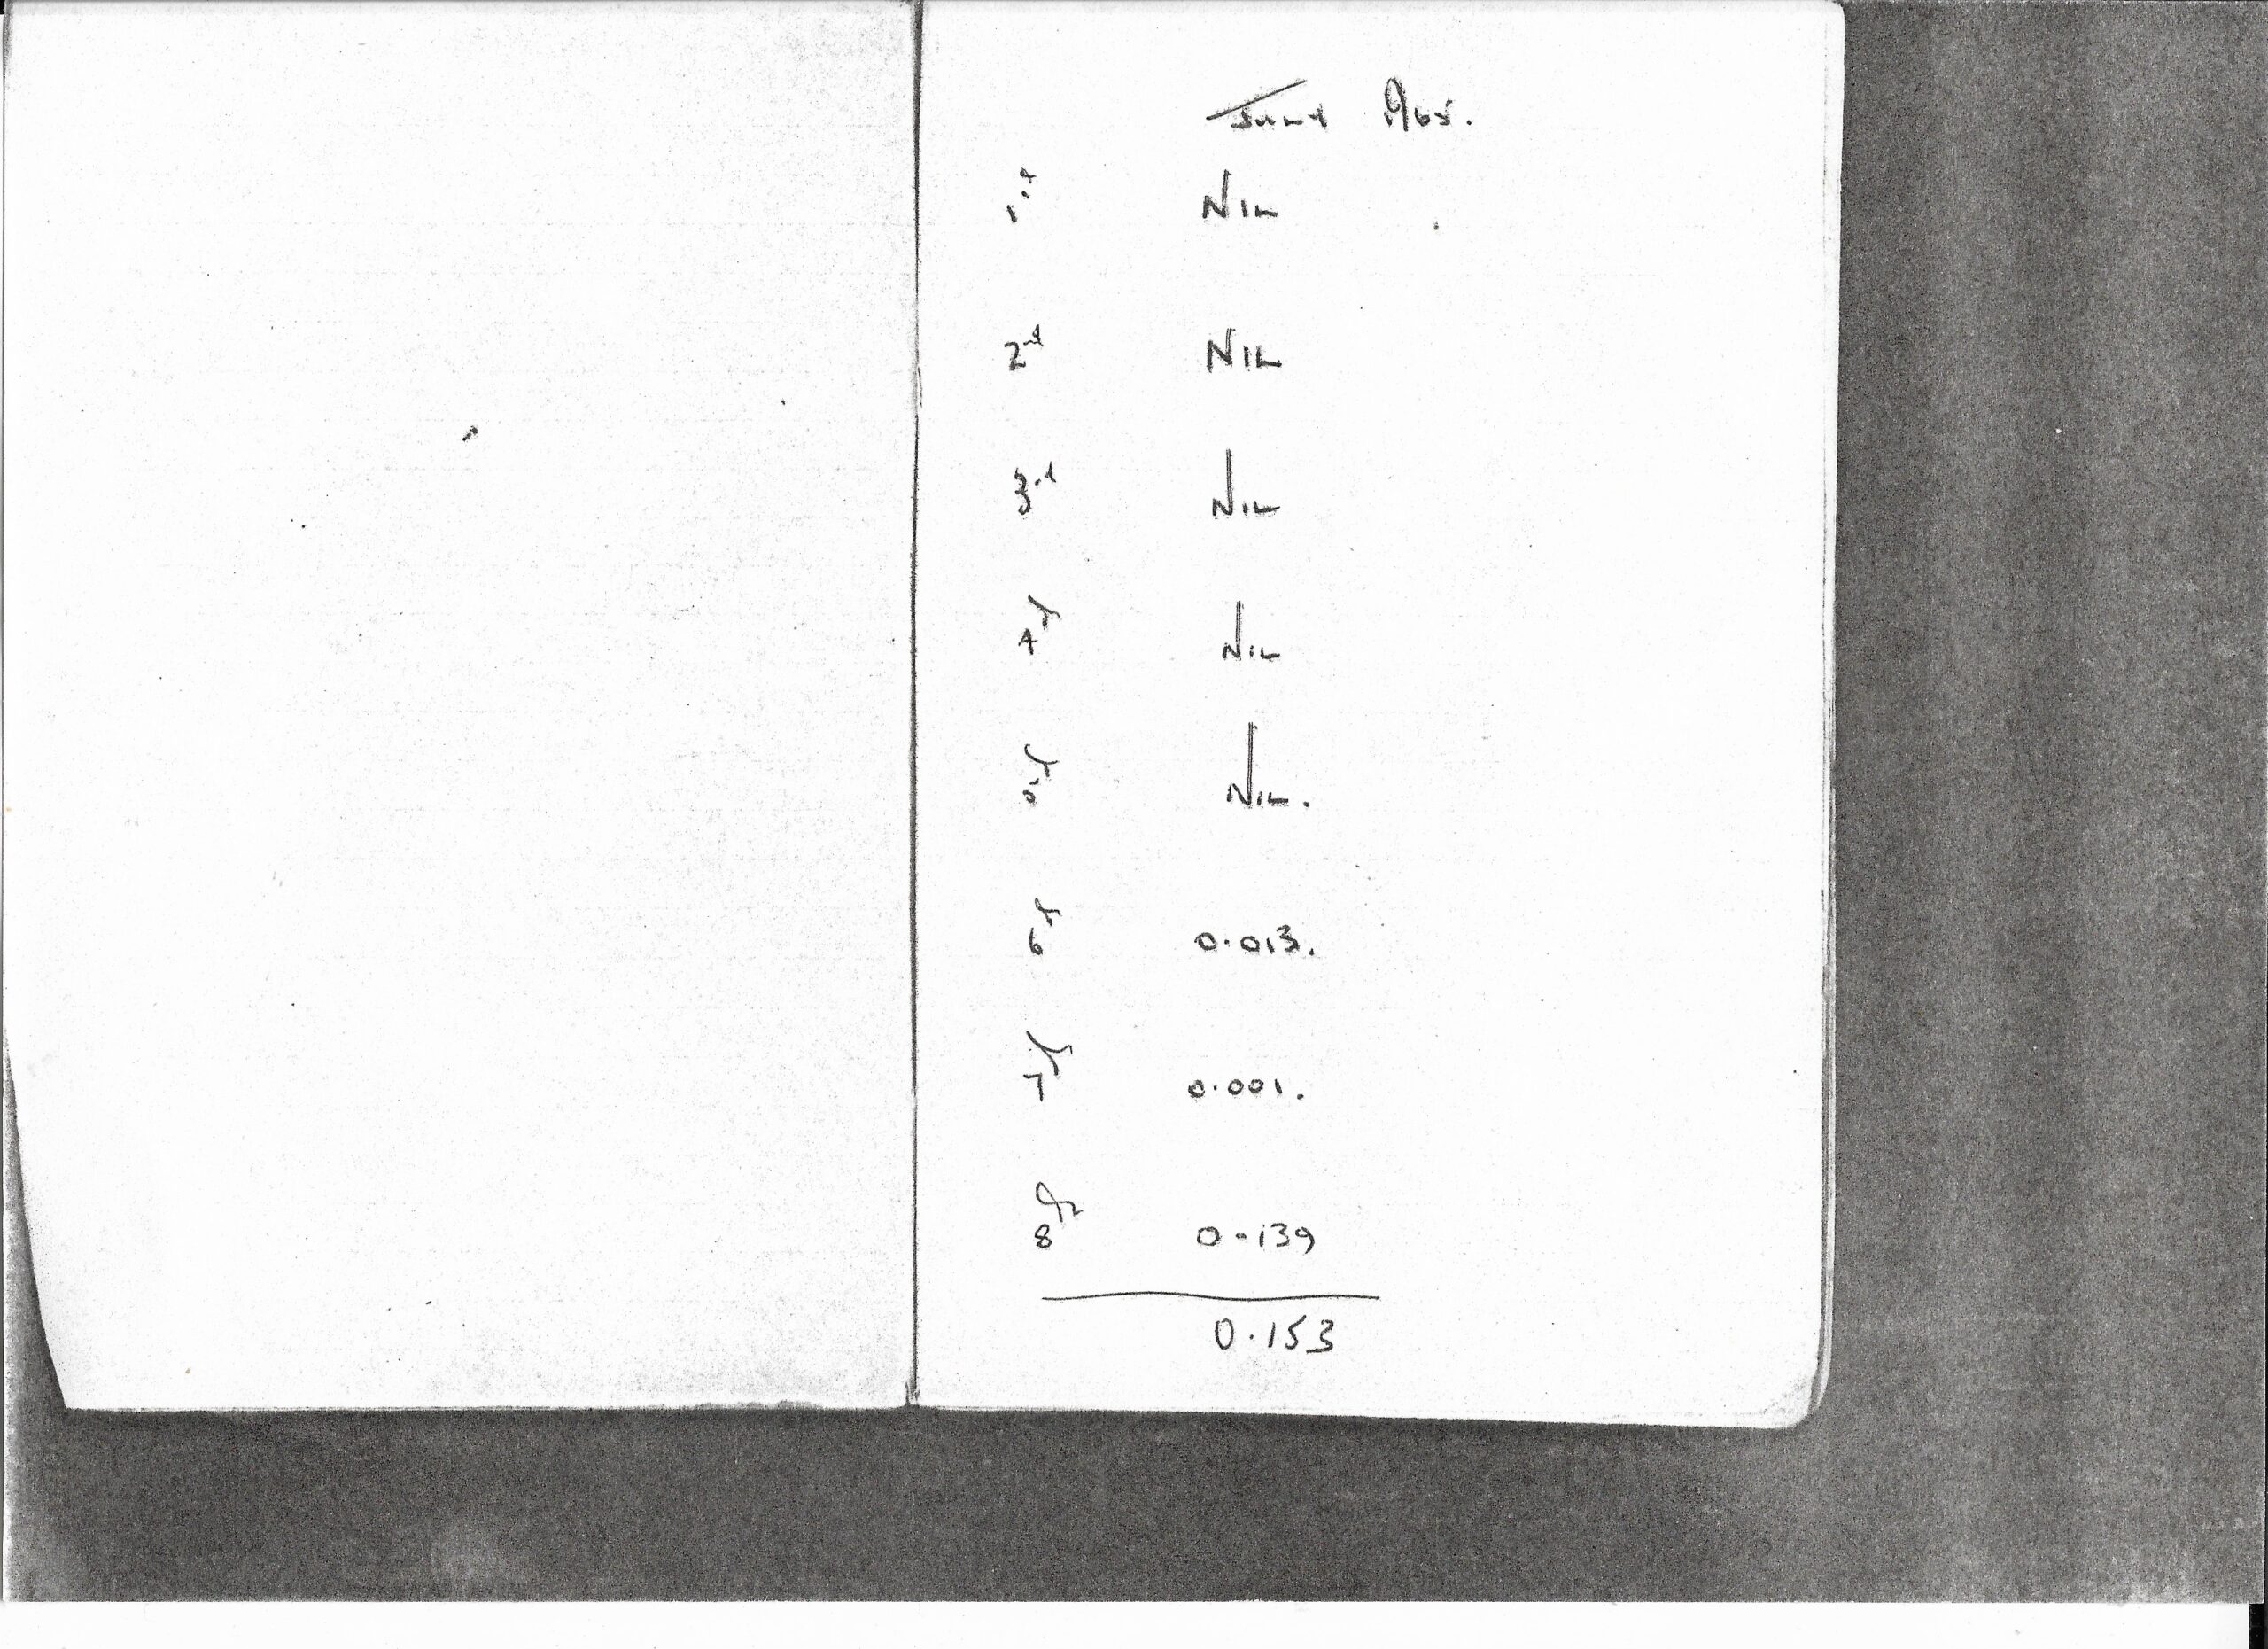 July 1965.
1st NIL
2nd NIL
3rd NIL
4th NIL
5th NIL.
6th 0.013.
7th 0.001.
8th 0.139
0.153